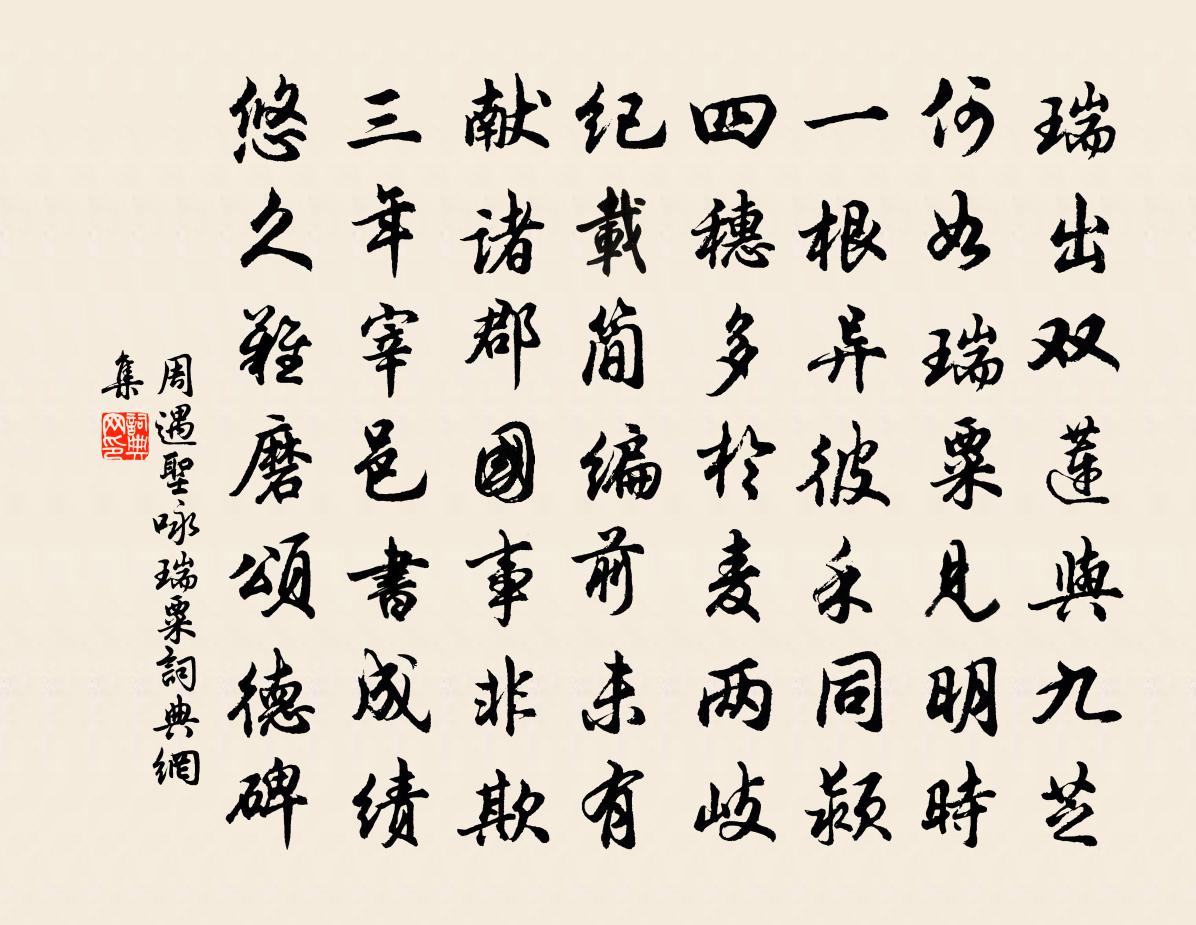 瑞出双莲與九芝
何如瑞粟見明時
一根异彼禾同颖
四穗多於麦两岐
纪載简编前未有
献诸郡國事非欺
三年宰邑書成绩
悠久難磨頌德碑
周遇聖咏瑞粟詞典網
集
詞典网印